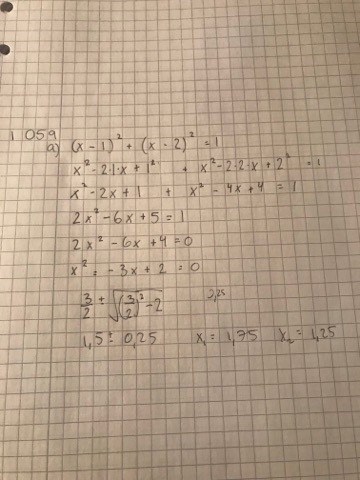 1059
a) (x - 1)² + (x - 2)² = 1
x² - 2·1·x + 1² + x² - 2·2·x + 2² = 1
x² - 2x + 1 + x² - 4x + 4 = 1
2x² - 6x + 5 = 1
2x² - 6x + 4 = 0
x² = - 3x + 2 = 0
3/2 ± √((3/2)² - 2) 2,25
1,5 ± 0,25 x₁ = 1,75 x₂ = 1,25